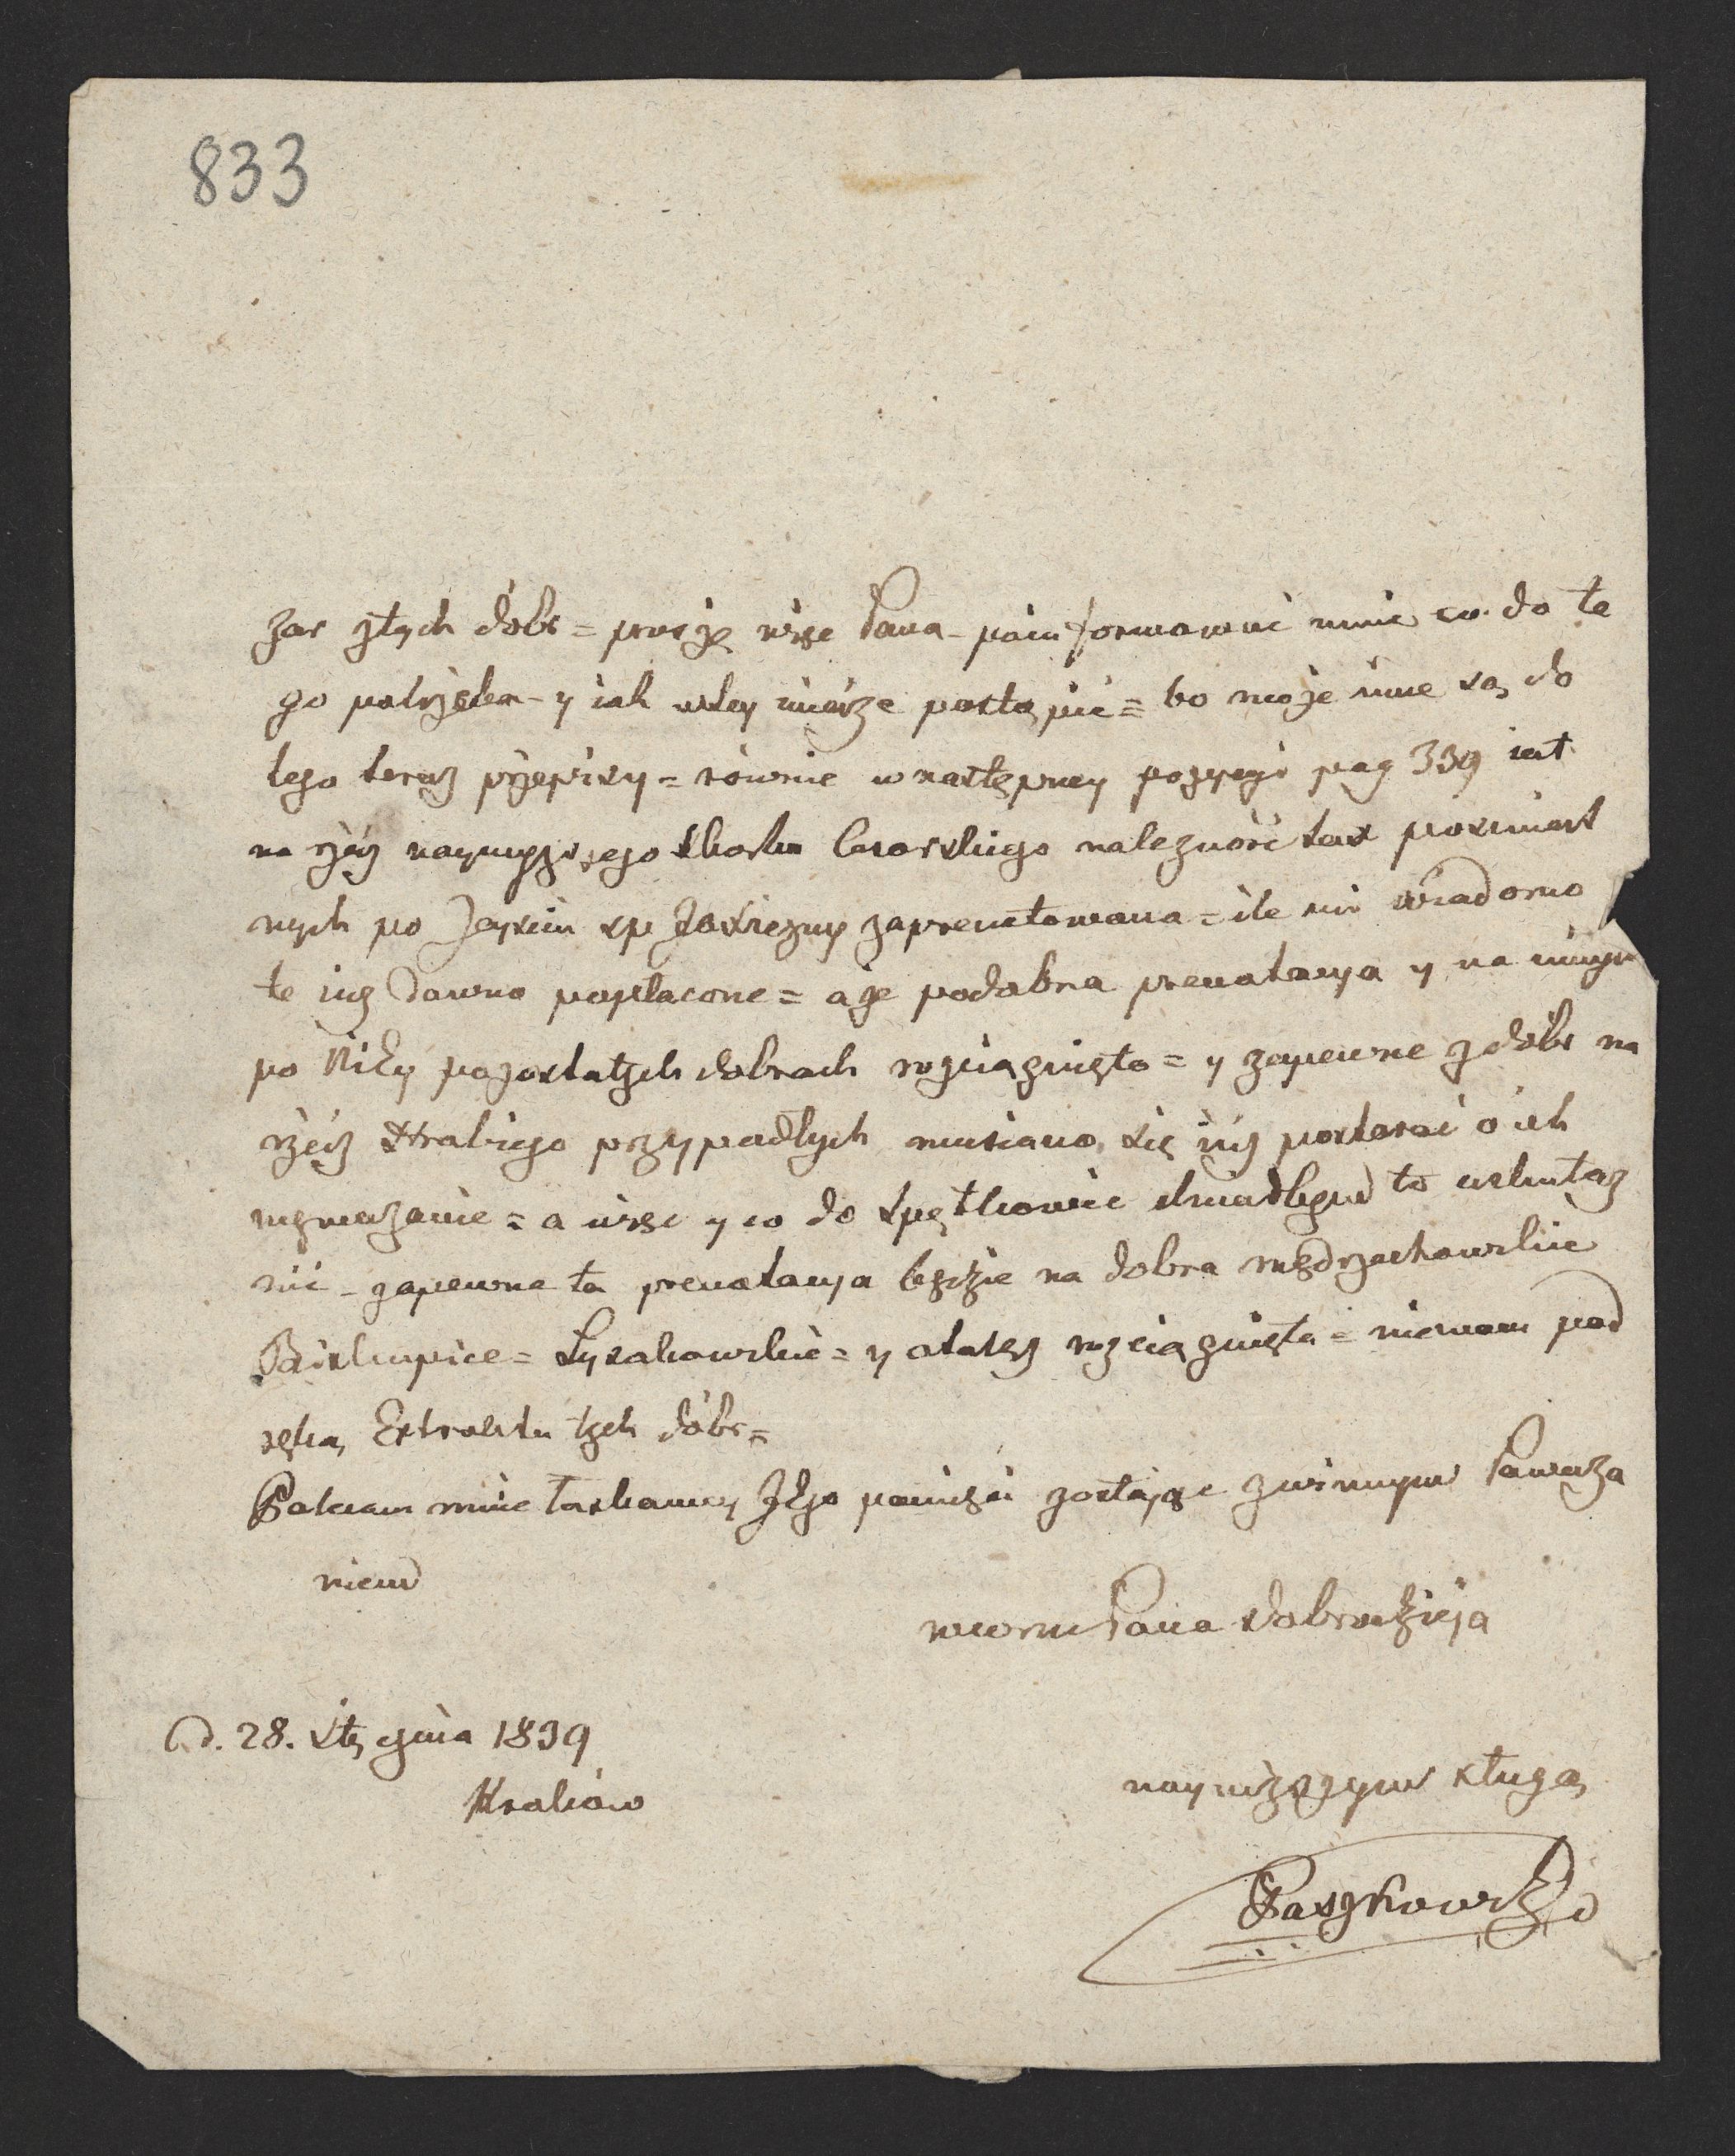 833
zar z tych dóbr = proszę więc Pana - poinformować mnie co do te
go potrzeba - y iak w tey mierze postąpić = bo może inne są do
tego teraz przepisy = równie w następney pozycyi pag 339 iest
na rzecz naywyższego Skarbu Cesarskiego należność tax
nych po Jaśnie śp zaprenotowana = ile mi wiadomo
te iuż dawno popłacone = a że podobna prenotacya y na innych
po Niey pozostałych dobrach rozciągnięta = y zapewne z dóbr na
rzecz Hrabiego przypadłych musiano się iuż postarać o ich
wymazanie = a więc y co do Spytkowic to
nić - zapewne ta prenotacya będzie na dobra mędrzechowskie
Biskupice = Łysakowskie = y rozciągnięta = niemam pod
ręką Extraktu tych dóbr =
Polecam mnie łaskawey Jego pamięci zostając z winnym Poważa
niem
Pana Dobrodzieja
d. 28. Stycznia 1839
Kraków
nayniższym sługą
Paszkowski